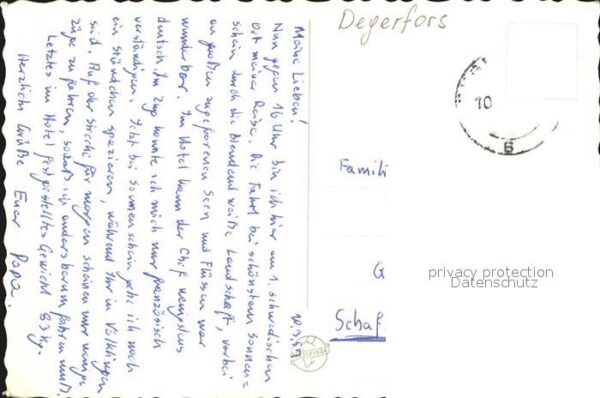 Degerfors
10
6
Meine Lieben!
Nun gegen 16 Uhr bin ich hier am 1. schwedischen
Ort meiner Reise. Die Fahrt bei schönstem Sonnen=
schein durch die blendend weiße Landschaft, vorbei
an großen zugefrorenen Seen und Flüssen war
wunderbar. Im Hotel kann der Chef wenigstens
deutsch. Im Zug konnte ich mich nur französisch
verständigen. Jetzt bei Sonnenschein gehe ich noch
ein Stündchen spazieren, während Ihr in Völklingen
seid. Auf der Strecke für morgen scheinen nur wenige
Züge zu fahren, sodaß ich anders herum fahren muß.
Letztes im Hotel festgestelltes Gewicht 83 kg.
Herzliche Grüße Euer Papa.
Famili
G
Schaf
privacy protection
Datenschutz